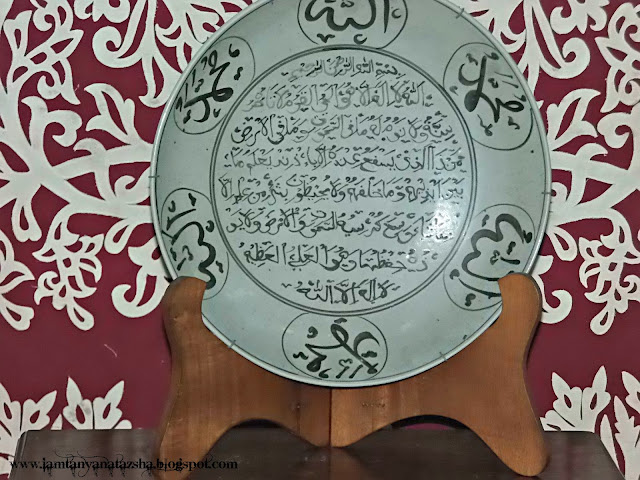 الله
محمد
محمد
بسم الله الرحمن الرحيم
الله لا اله الا هو الحي القيوم لا تاخذه
سنة ولا نوم له ما في السموات وما في الارض
من ذا الذي يشفع عنده الا باذنه يعلم ما
بين ايديهم وما خلفهم ولا يحيطون بشيء من علمه الا
بما شاء وسع كرسيه السموات والارض ولا يؤد
ه حفظهما وهو العلي العظيم
لا اله الا الله
الله
الله
محمد
www.iamtanyanatazsha.blogspot.com